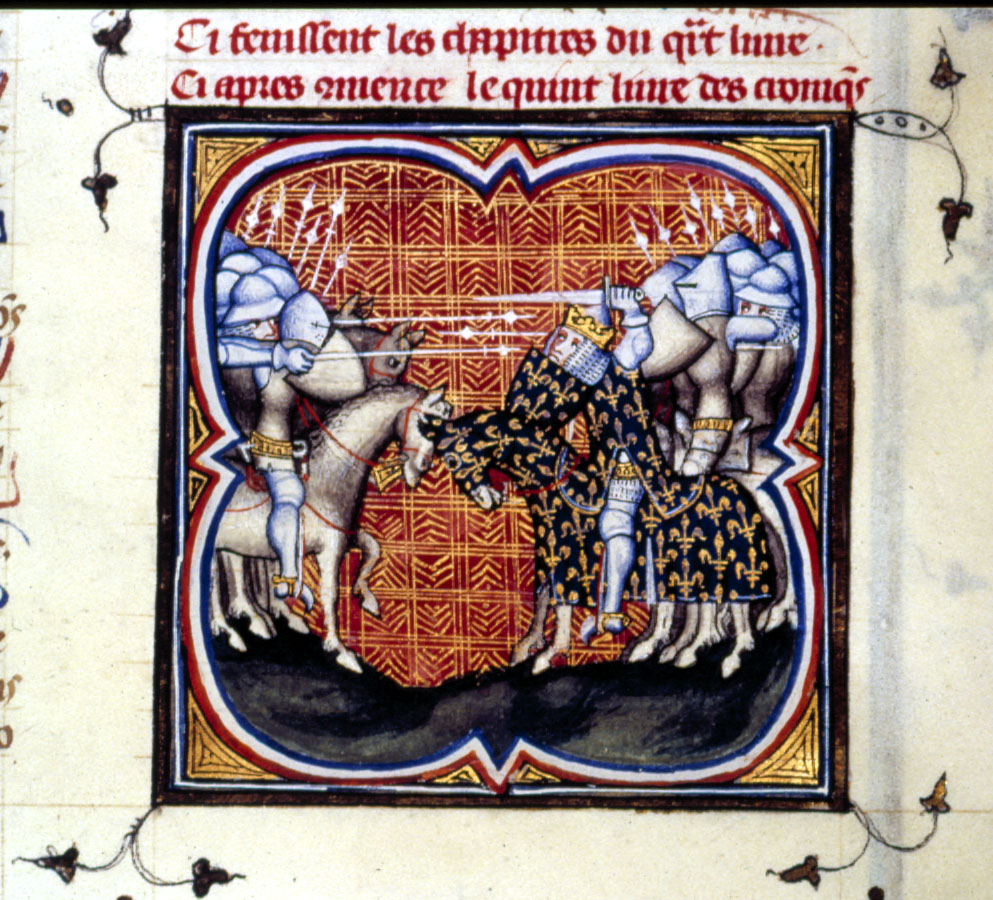 Ci fenissent les chapitres du q̃rt liure.
Ci apres ꝯmence le quint liure des croniq̃s